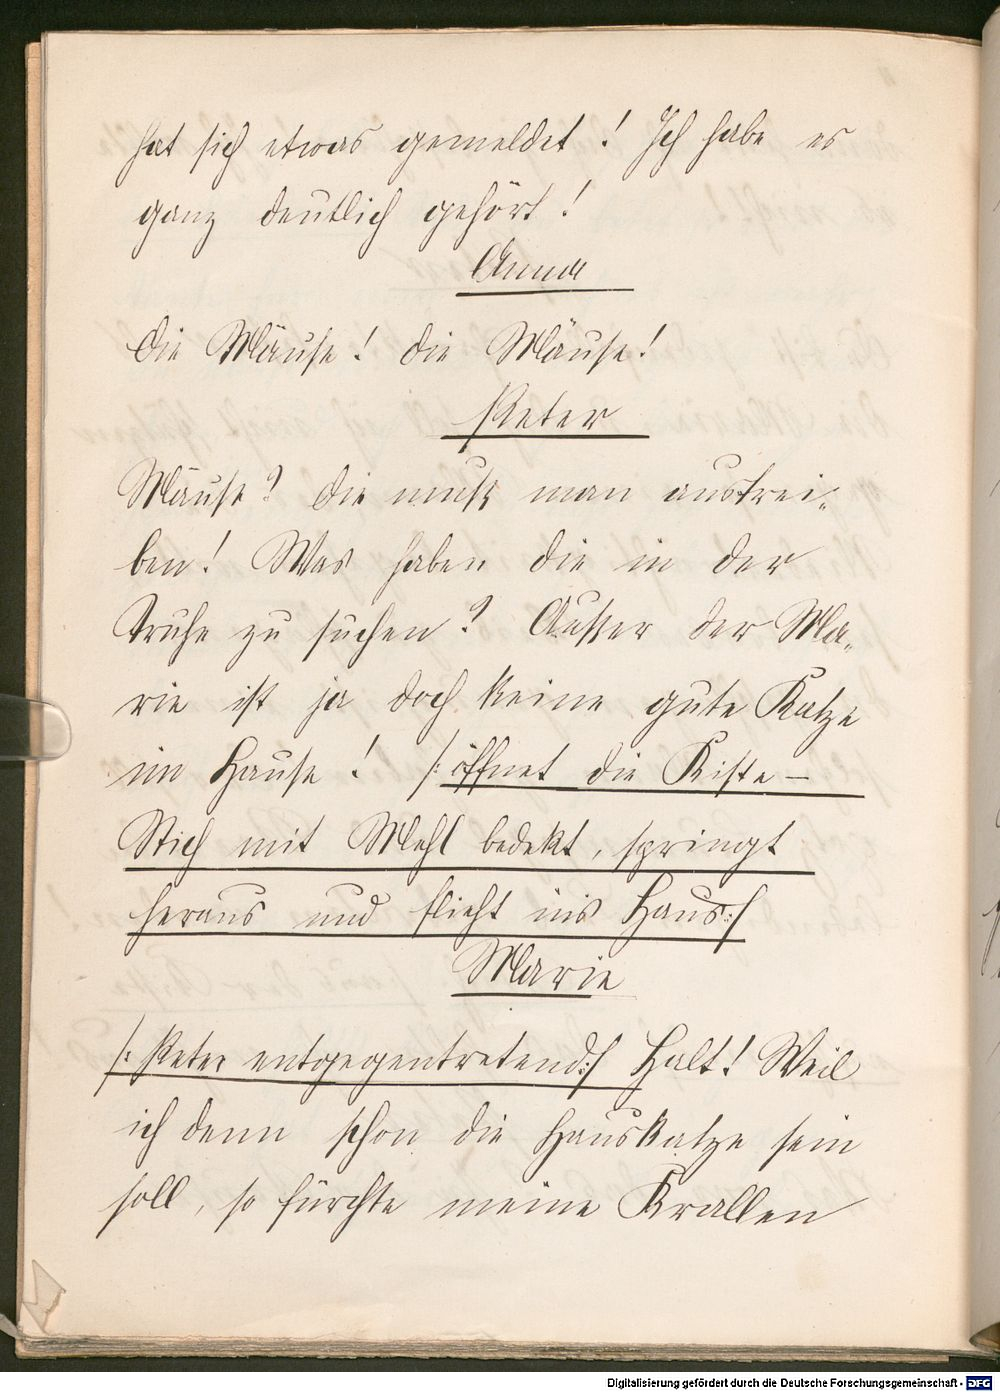 hat sich etwas gemeldet! Ich habe es
ganz deutlich gehört!
Anna
Die Mäuse! die Mäuse!
Peter
Mäuse? Die muß man austrei-
ben! Was haben die in der
Truhe zu suchen? Außer der Ma-
rie ist ja doch keine gute Katze
im Hause! /: öffnet die Kiste –
Stich mit Mehl bedekt, springt
heraus und flieht ins Haus :/
Marie
/: Peter entgegentretend :/ Halt! Weil
ich denn schon die Hauskatze sein
soll, so fürchte meine Krallen
Digitalisierung gefördert durch die Deutsche Forschungsgemeinschaft - DFG